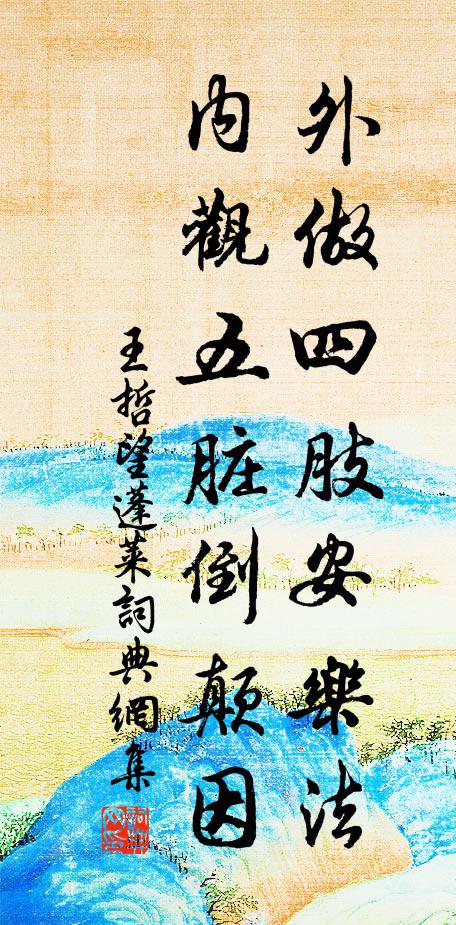 外做四肢安樂法
内觀五脏倒颠因
王哲望蓬莱詞典網集